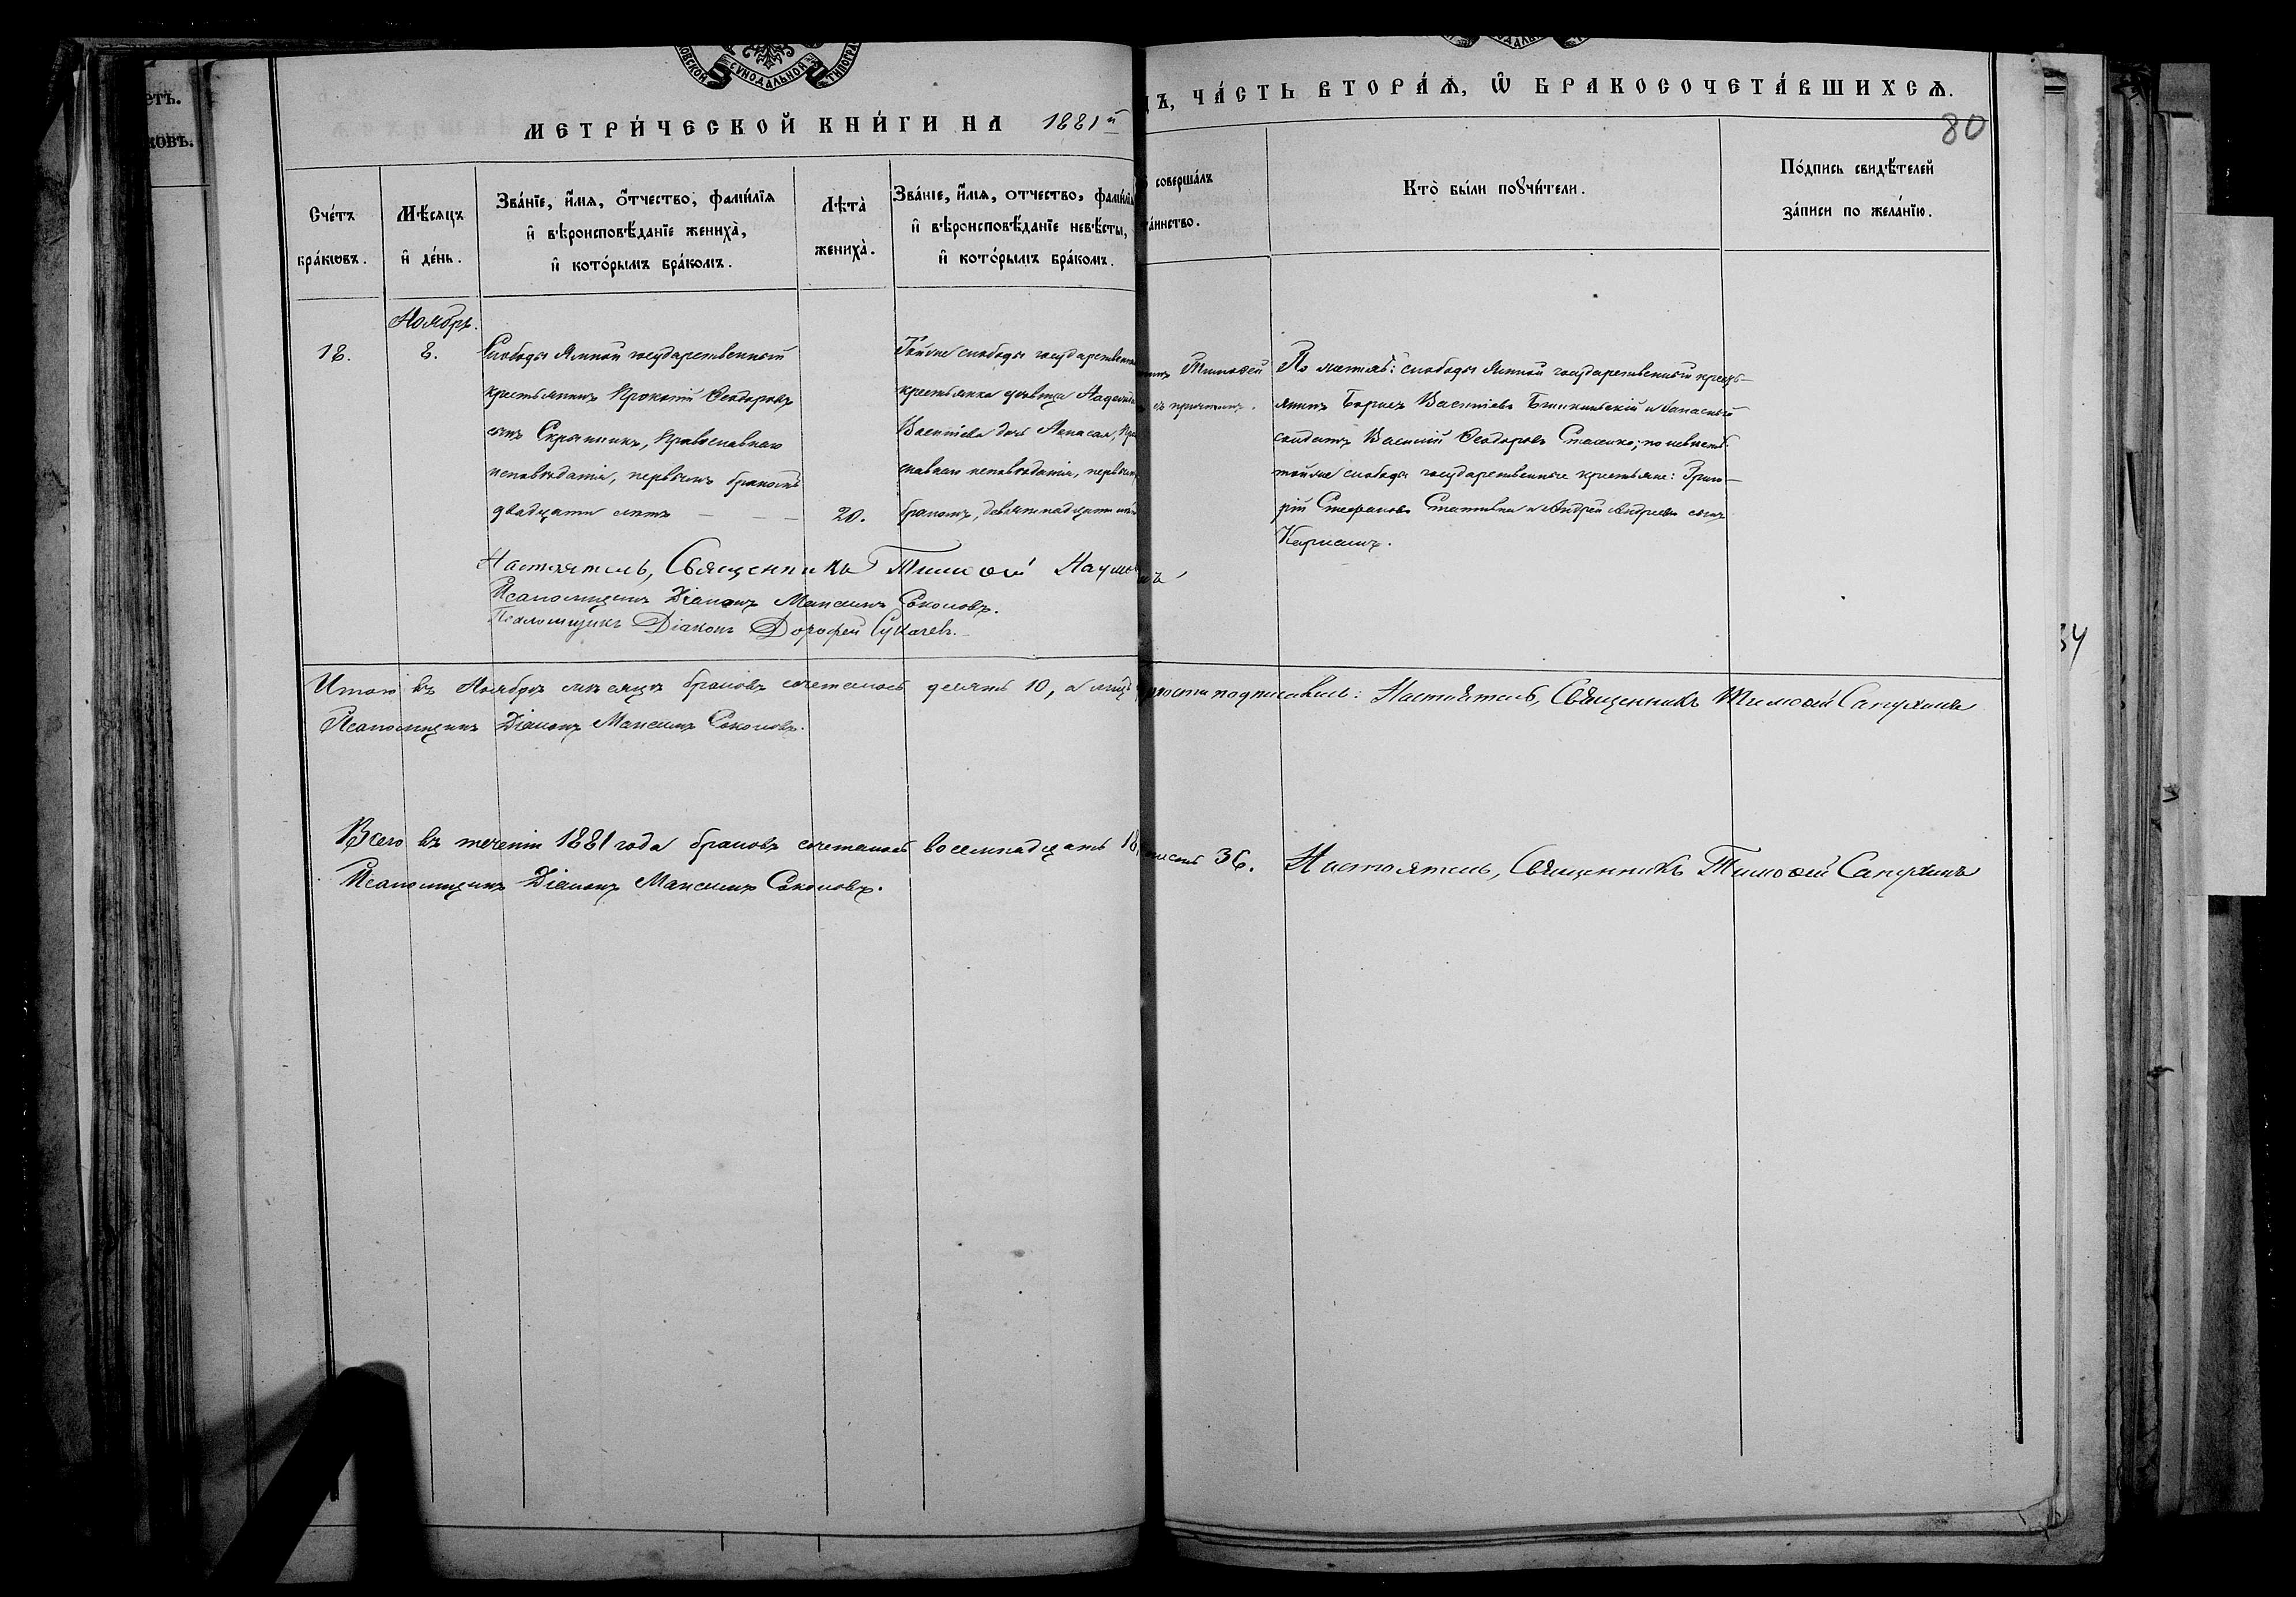 СѴНОДАЛЬНОЙ
МЕТРИ́ЧЕСКОЙ КНИ́ГИ НА 1881й
ЧА́СТЬ ВТОРА́Ѧ, Ѡ҆ БРАКОСОЧЕТА́ВШИХСѦ.
80
Сче́тъ бра́кѡвъ.
Мѣ́сѧцъ и҆ де́нь.
Зва́нїе, и҆́мѧ, ѻ҆́тчество, фами́лїѧ и҆ вѣроисповѣ́данїе жениха̀, и҆ кото́рымъ бра́комъ.
Лѣта̀ жениха̀.
Зва́нїе, и҆́мѧ, отчество, фами́лїѧ и҆ вѣроисповѣ́данїе невѣ́сты, и҆ кото́рымъ бра́комъ.
соверша́лъ
та́инство.
Кто̀ бы́ли поꙋчи́тели.
По́дпись свидѣ́телей за́писи по жела́нїю.
Ноябрь.
18.
8.
Слободы Ямной государственный
крестьянинъ Прокопій Ѳеодоровъ
сынъ Скрыпникъ, Православнаго
исповѣданія, первымъ бракомъ
двадцати лѣтъ
20.
Той же слободы государственн
крестьянка дѣвица
Васильева дочь
славнаго исповѣданія, первымъ
бракомъ, девятнадцати
Тимоѳей
съ причтомъ.
По женихѣ: слободы Ямной государственный кресть-
янинъ Борисъ Васильевъ и запасный
солдатъ Василій Ѳеодоровъ по невѣстѣ
той же слободы государственные крестьяне: Григо-
рій Стефановъ и Андрей Андреевъ сынъ
Настоятель, Священникъ Тимоѳей
Псаломщикъ Діаконъ Максимъ Соколовъ.
Псаломщикъ Діаконъ Дорофей Сукачевъ.
Итого въ Ноябрѣ мѣсяцѣ браковъ сочеталось девять 10, а лицъ
подписались: Настоятель, Священникъ Тимоѳей Сапухинъ
Псаломщикъ Діаконъ Максимъ Соколовъ.
Всего въ теченіи 1881 года браковъ сочеталось восемнадцать 18,
шесть 36. Настоятель, Священникъ Тимоѳей Сапухинъ
Псаломщикъ Діаконъ Максимъ Соколовъ.